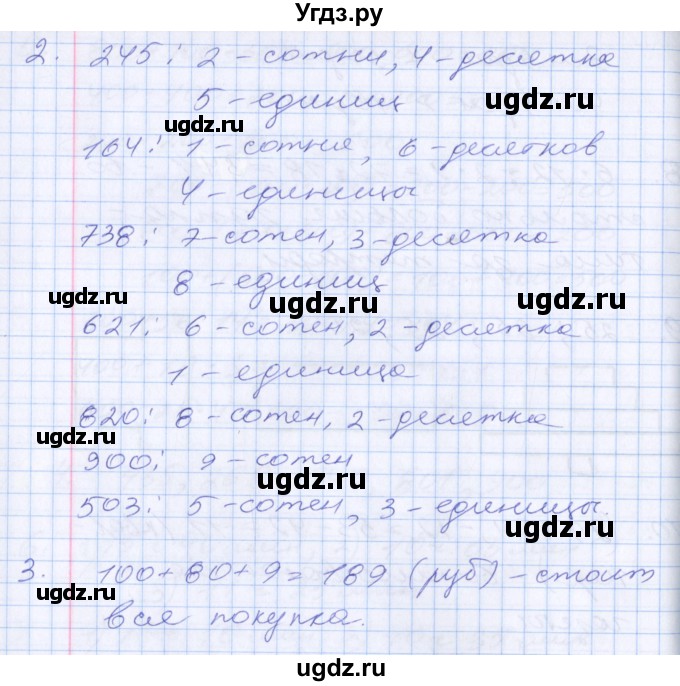 Угдз.ру
2. 245: 2 - сотни, 4 - десятка
5 - единиц
ugdz.ru
164: 1 - сотня, 6 - десятков
ugdz.ru
4 - единицы
738: 7 - сотен, 3 - десятка
8 - единиц
ugdz.ru
ugdz.ru
621: 6 - сотен, 2 - десятка
1 - единица
820: 8 - сотен, 2 - десятка
ugdz.ru
900: 9 - сотен
ugdz.ru
503: 5 - сотен, 3 - единицы.
ugdz.ru
3. 100 + 80 + 9 = 189 (руб) - стоит
ugdz.ru
вся покупка.
ugdz.ru
ugdz.ru